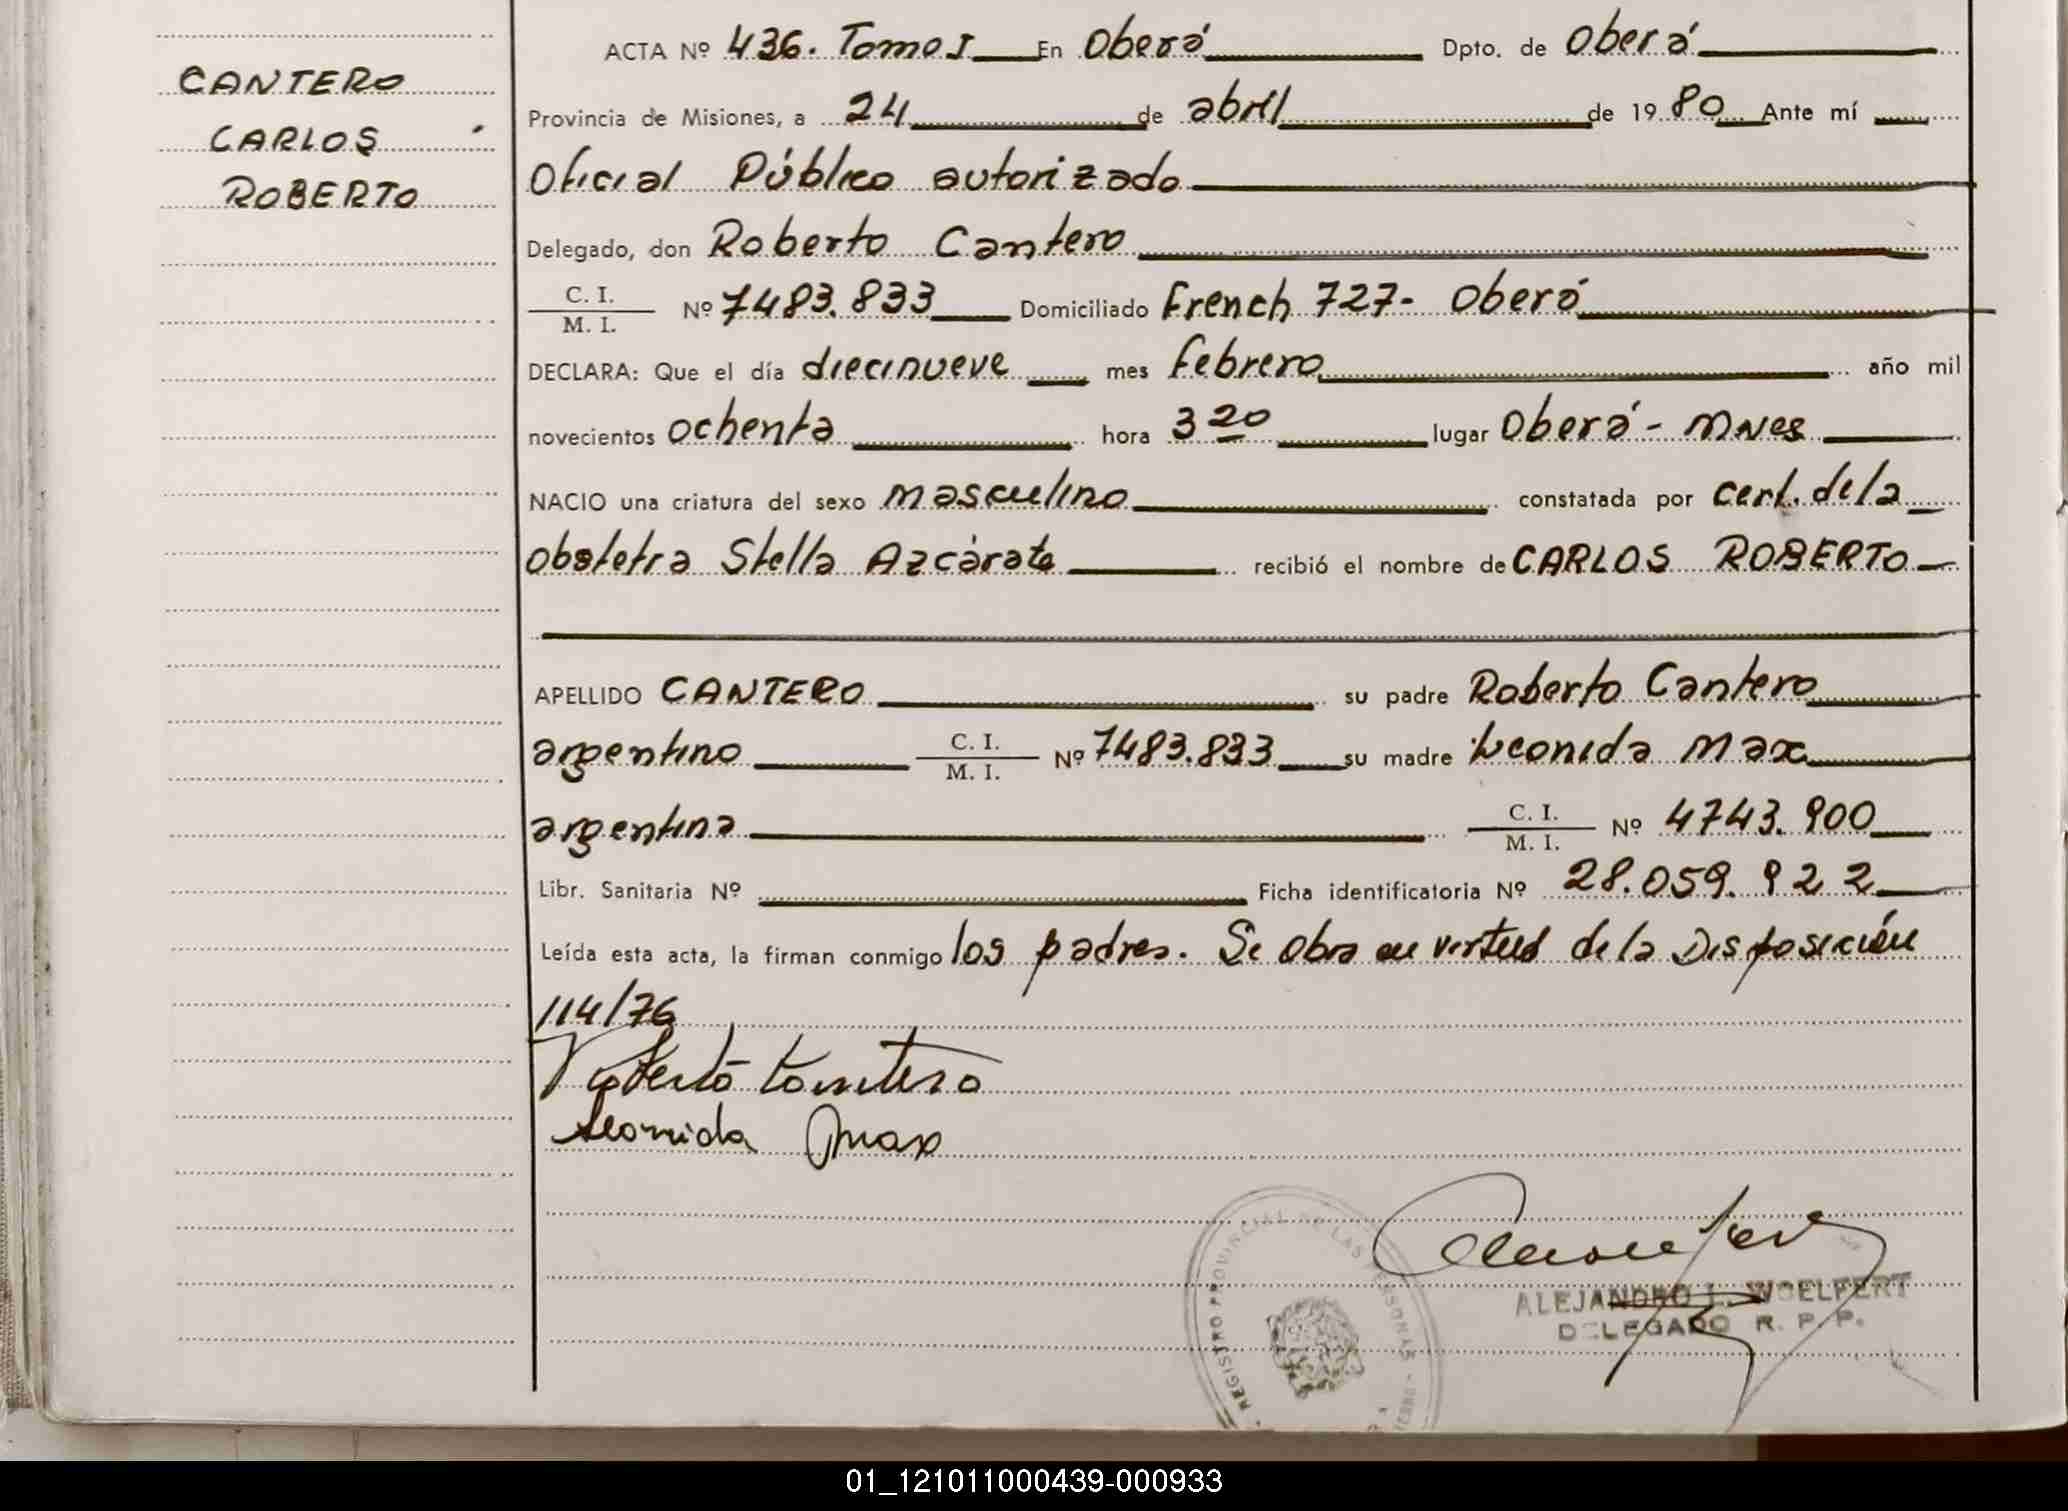 CANTERO
CARLOS
ROBERTO
ACTA Nº 436. Tomo I En Oberá Dpto. de Oberá
Provincia de Misiones, a 24 de abril de 1980 Ante mí
Oficial Público autorizado
Delegado, don Roberto Cantero
C. I.
M. I. Nº 7483.833 Domiciliado French 727- Oberá
DECLARA: Que el día diecinueve mes febrero año mil
novecientos ochenta hora 3 20 lugar Oberá - Mnes
NACIO una criatura del sexo masculino constatada por cert. de la
Obstetra Stella Azcárate recibió el nombre de CARLOS ROBERTO
APELLIDO CANTERO su padre Roberto Cantero
argentino C. I. M. I. Nº 7483.833 su madre Leonida Max
argentina C. I. M. I. Nº 4743.900
Libr. Sanitaria Nº Ficha identificatoria Nº 28.059.922
Leída esta acta, la firman conmigo los padres. Se obra en virtud de la Disposición
114/76
Roberto Cantero
Leonida Max
REGISTRO PROVINCIAL DE LAS PERSONAS
ALEJANDRO L. WOELFERT
DELEGADO R. P. P.
01_121011000439-000933